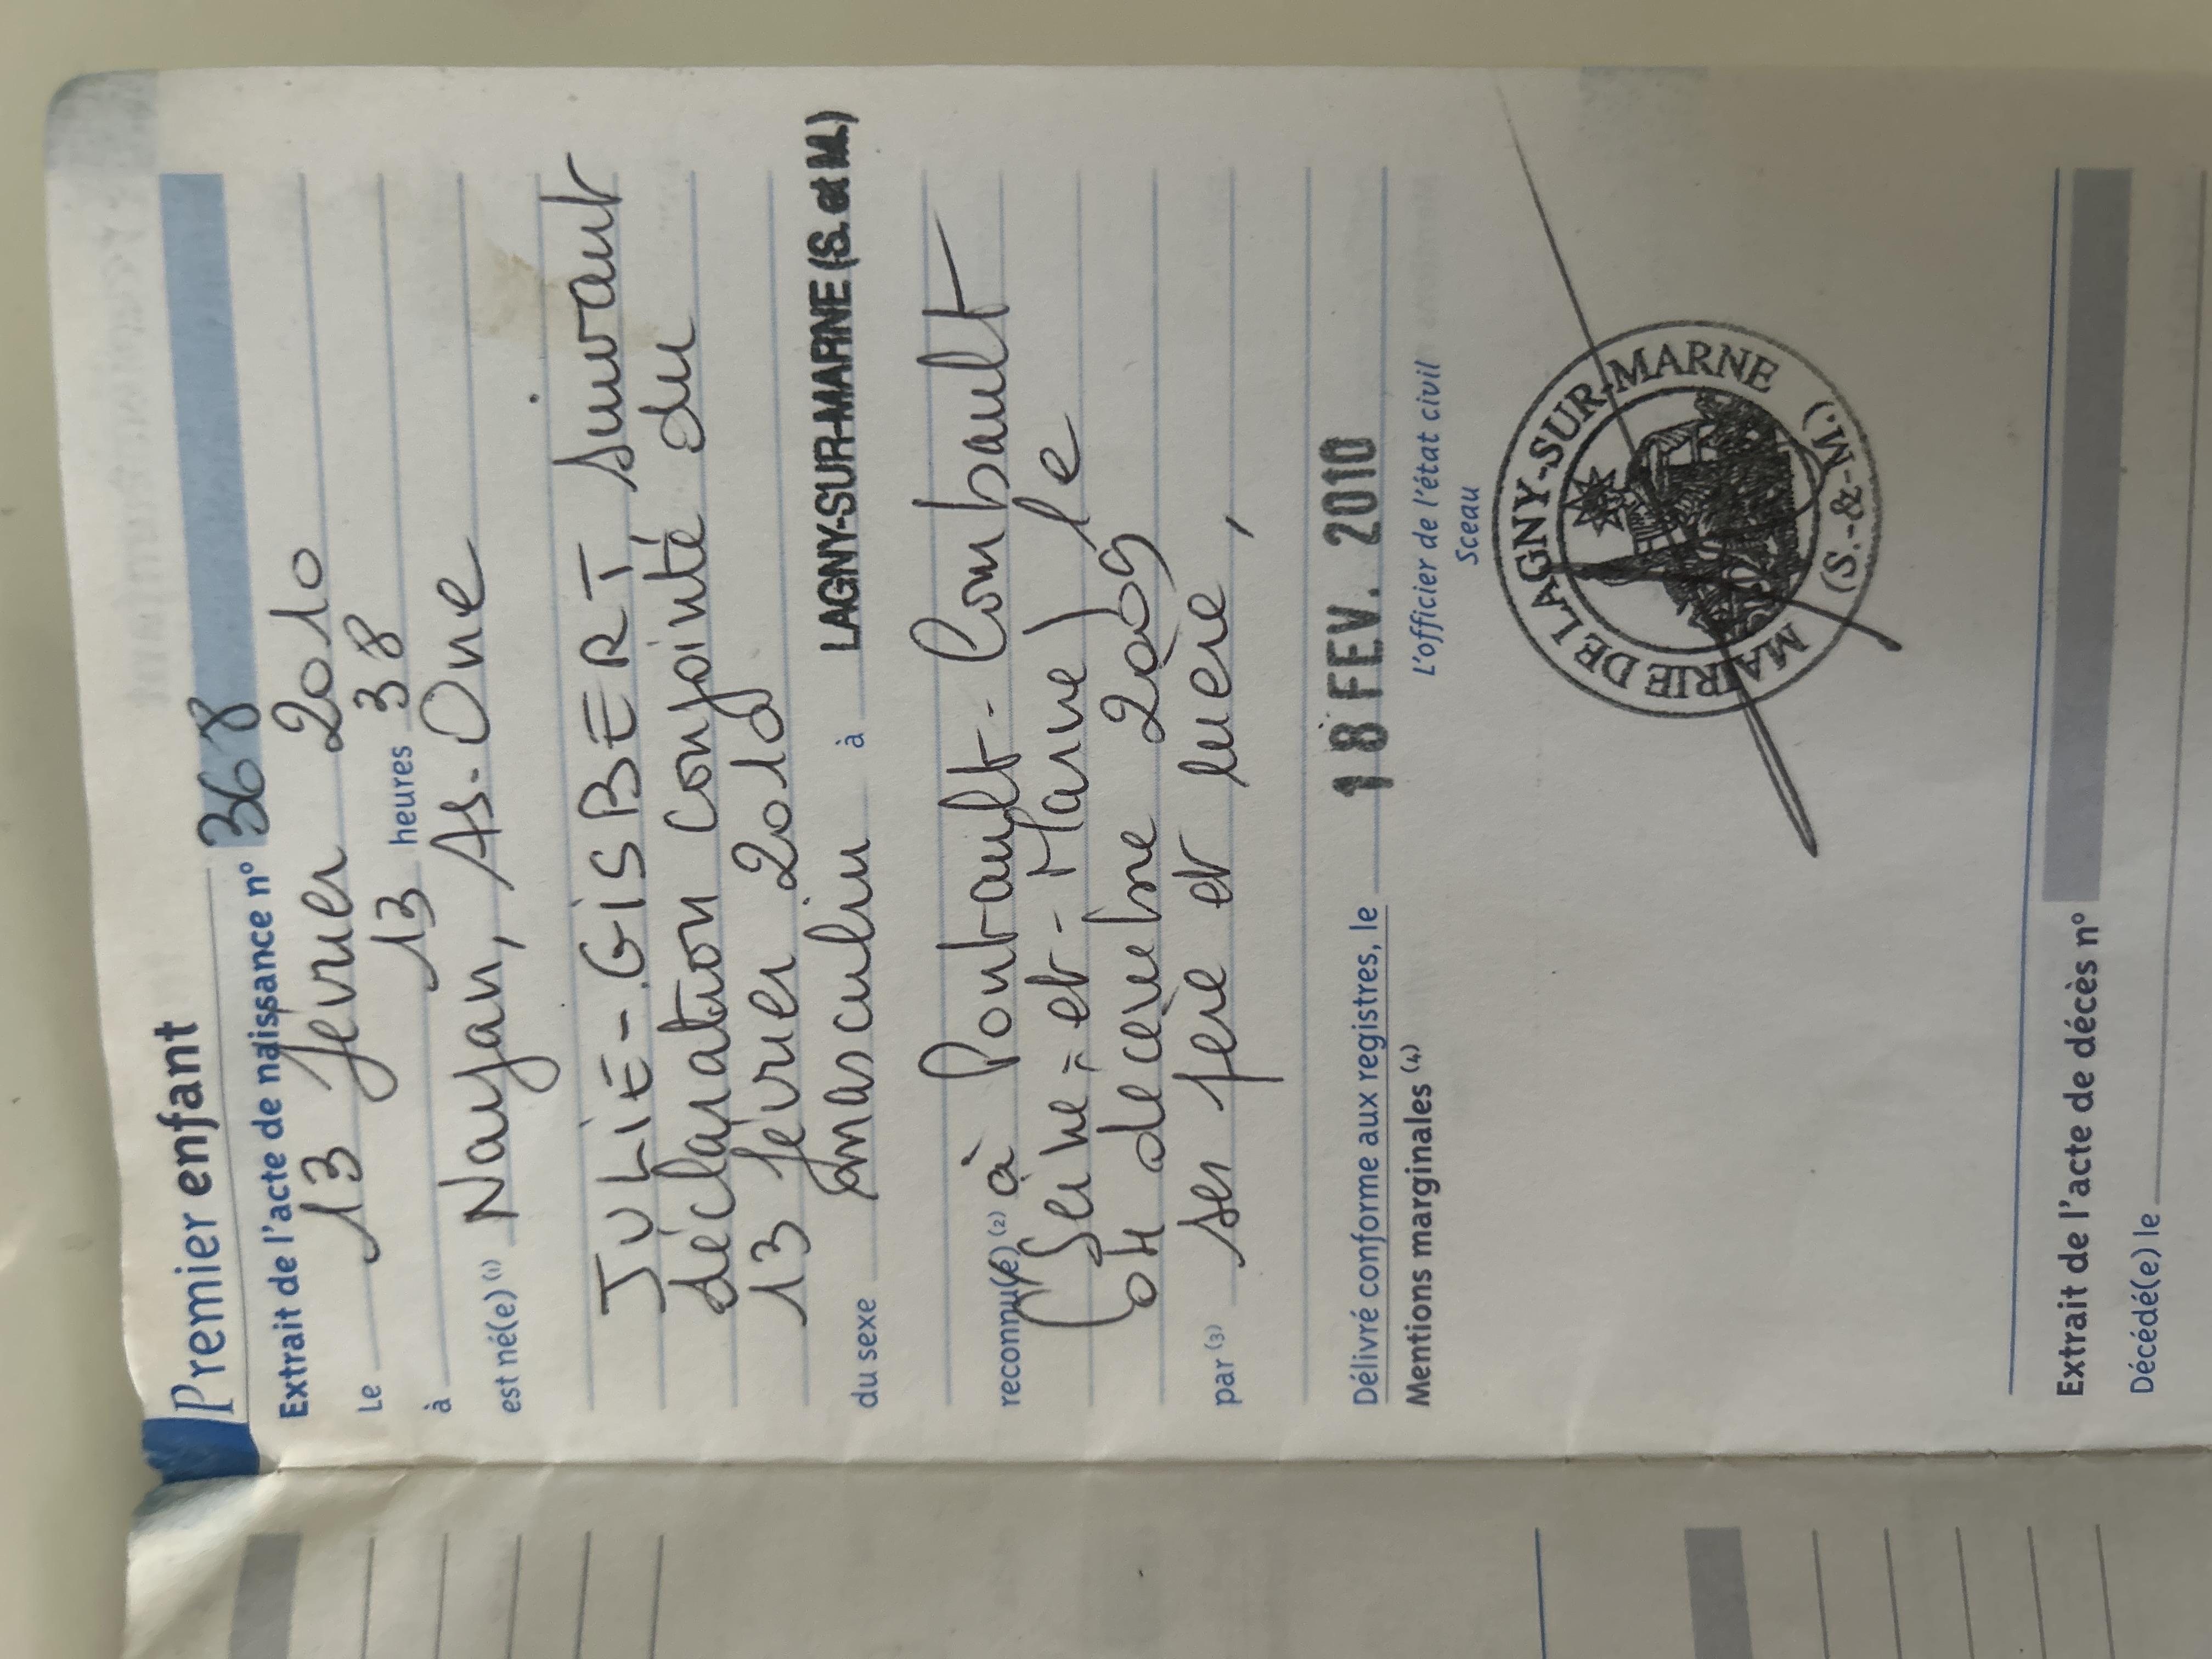 Premier enfant
Extrait de l'acte de naissance n° 368
Le 13 février 2010
à 13 heures 38
est né(e) (1) Nayan, As-One
JULIE-GISBERT suivant
déclaration conjointe du
13 février 2010
du sexe masculin à LAGNY-SUR-MARNE (S. et M.)
reconnu(e) (2) à Pontault-Combault
(Seine-et-Marne) le
04 décembre 2009
par (3) ses père et mère,
Délivré conforme aux registres, le 18 FEV. 2010
Mentions marginales (4)
L'officier de l'état civil
Sceau
MAIRIE DE LAGNY-SUR-MARNE
(S.-&-M.)
Extrait de l'acte de décès n°
Décédé(e) le